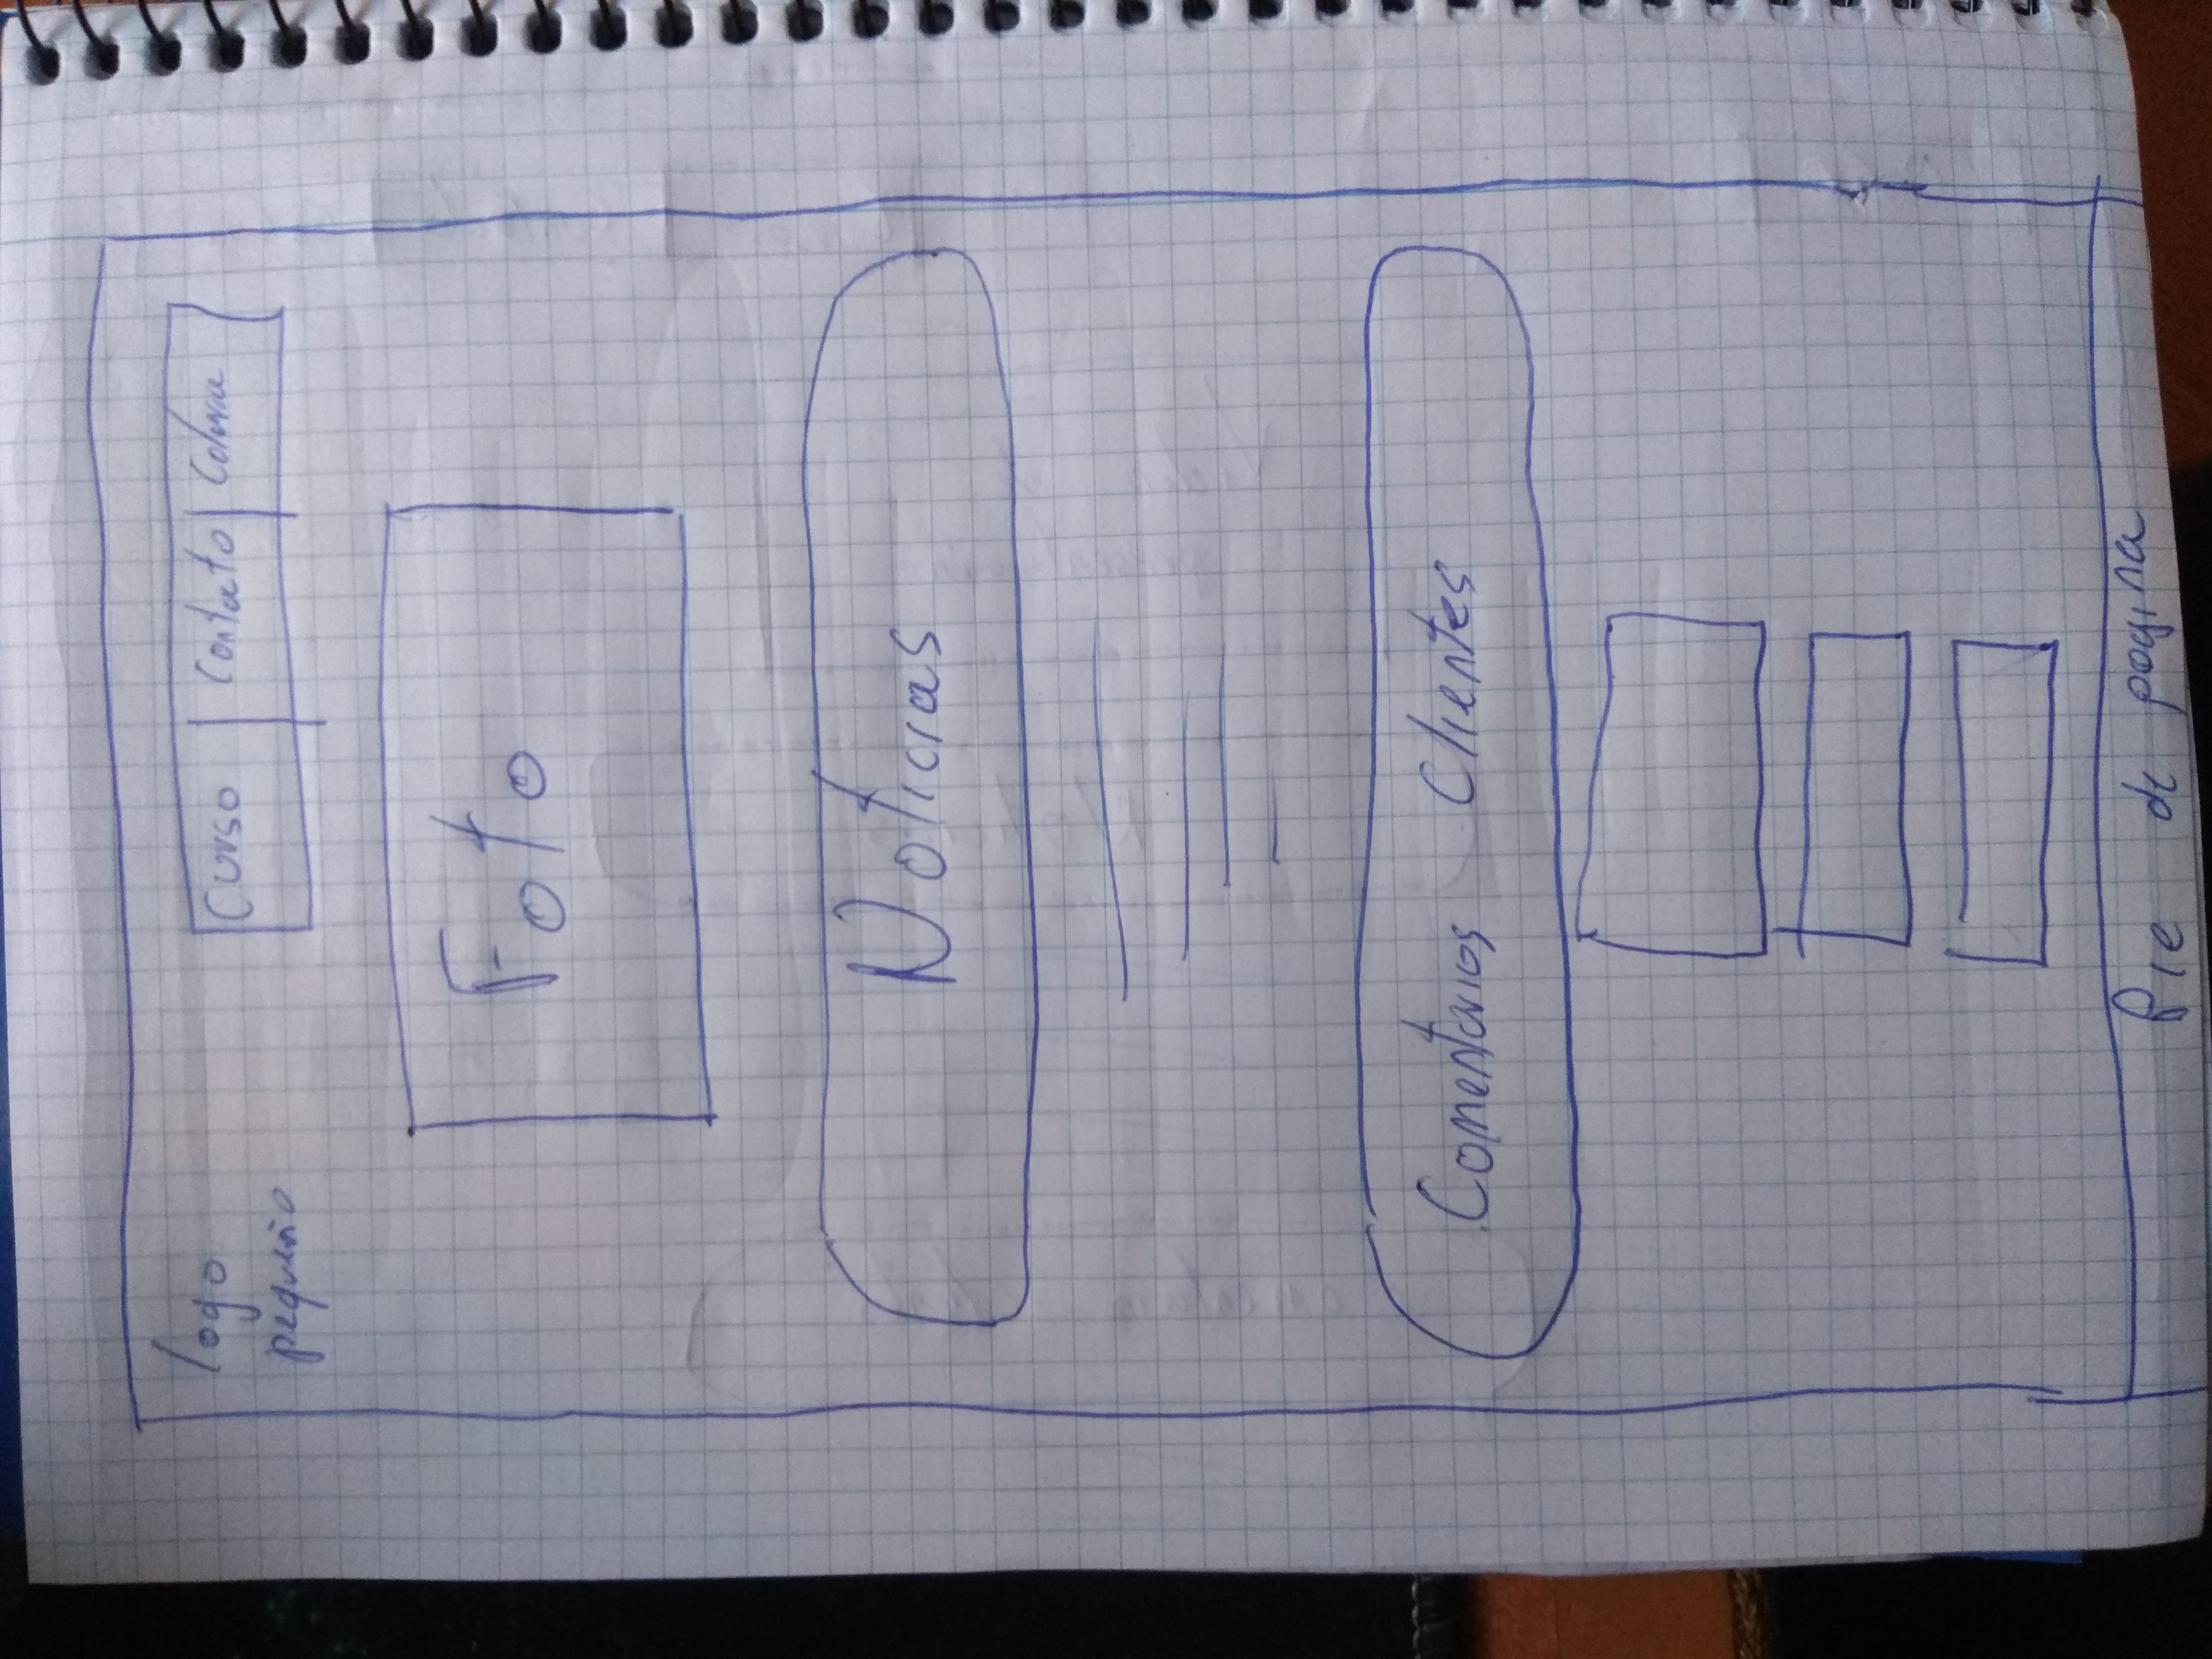 logo
pequeño
Curso Contacto
Foto
Noticias
Comentarios Clientes
Pie de pagina